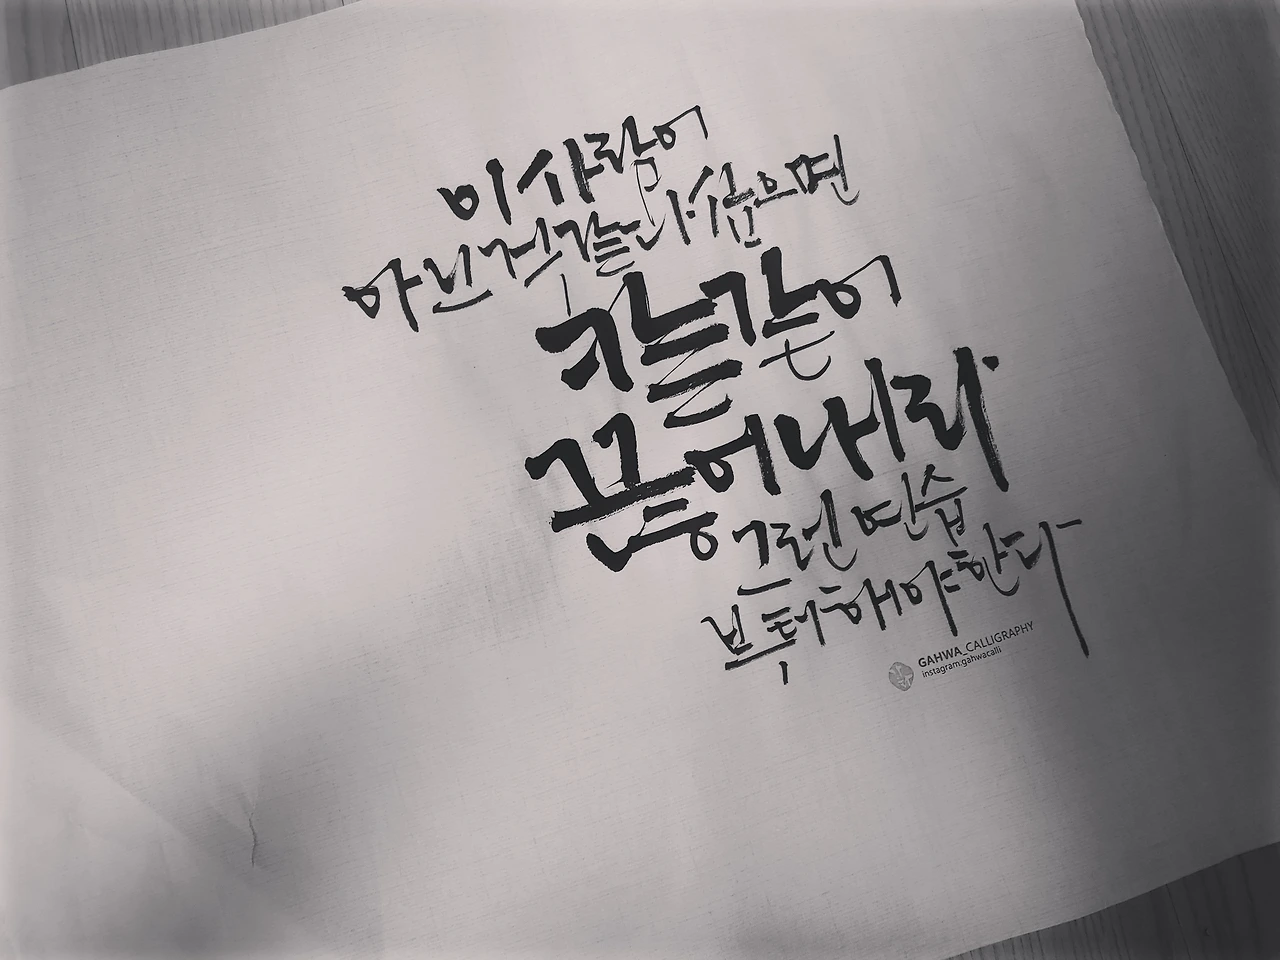 이 사람이
아닌것같다 싶으면
칼같이
끊어내라
그런 연습
부터 해야한다
GAHWA_CALLIGRAPHY
instagram:gahwacalli